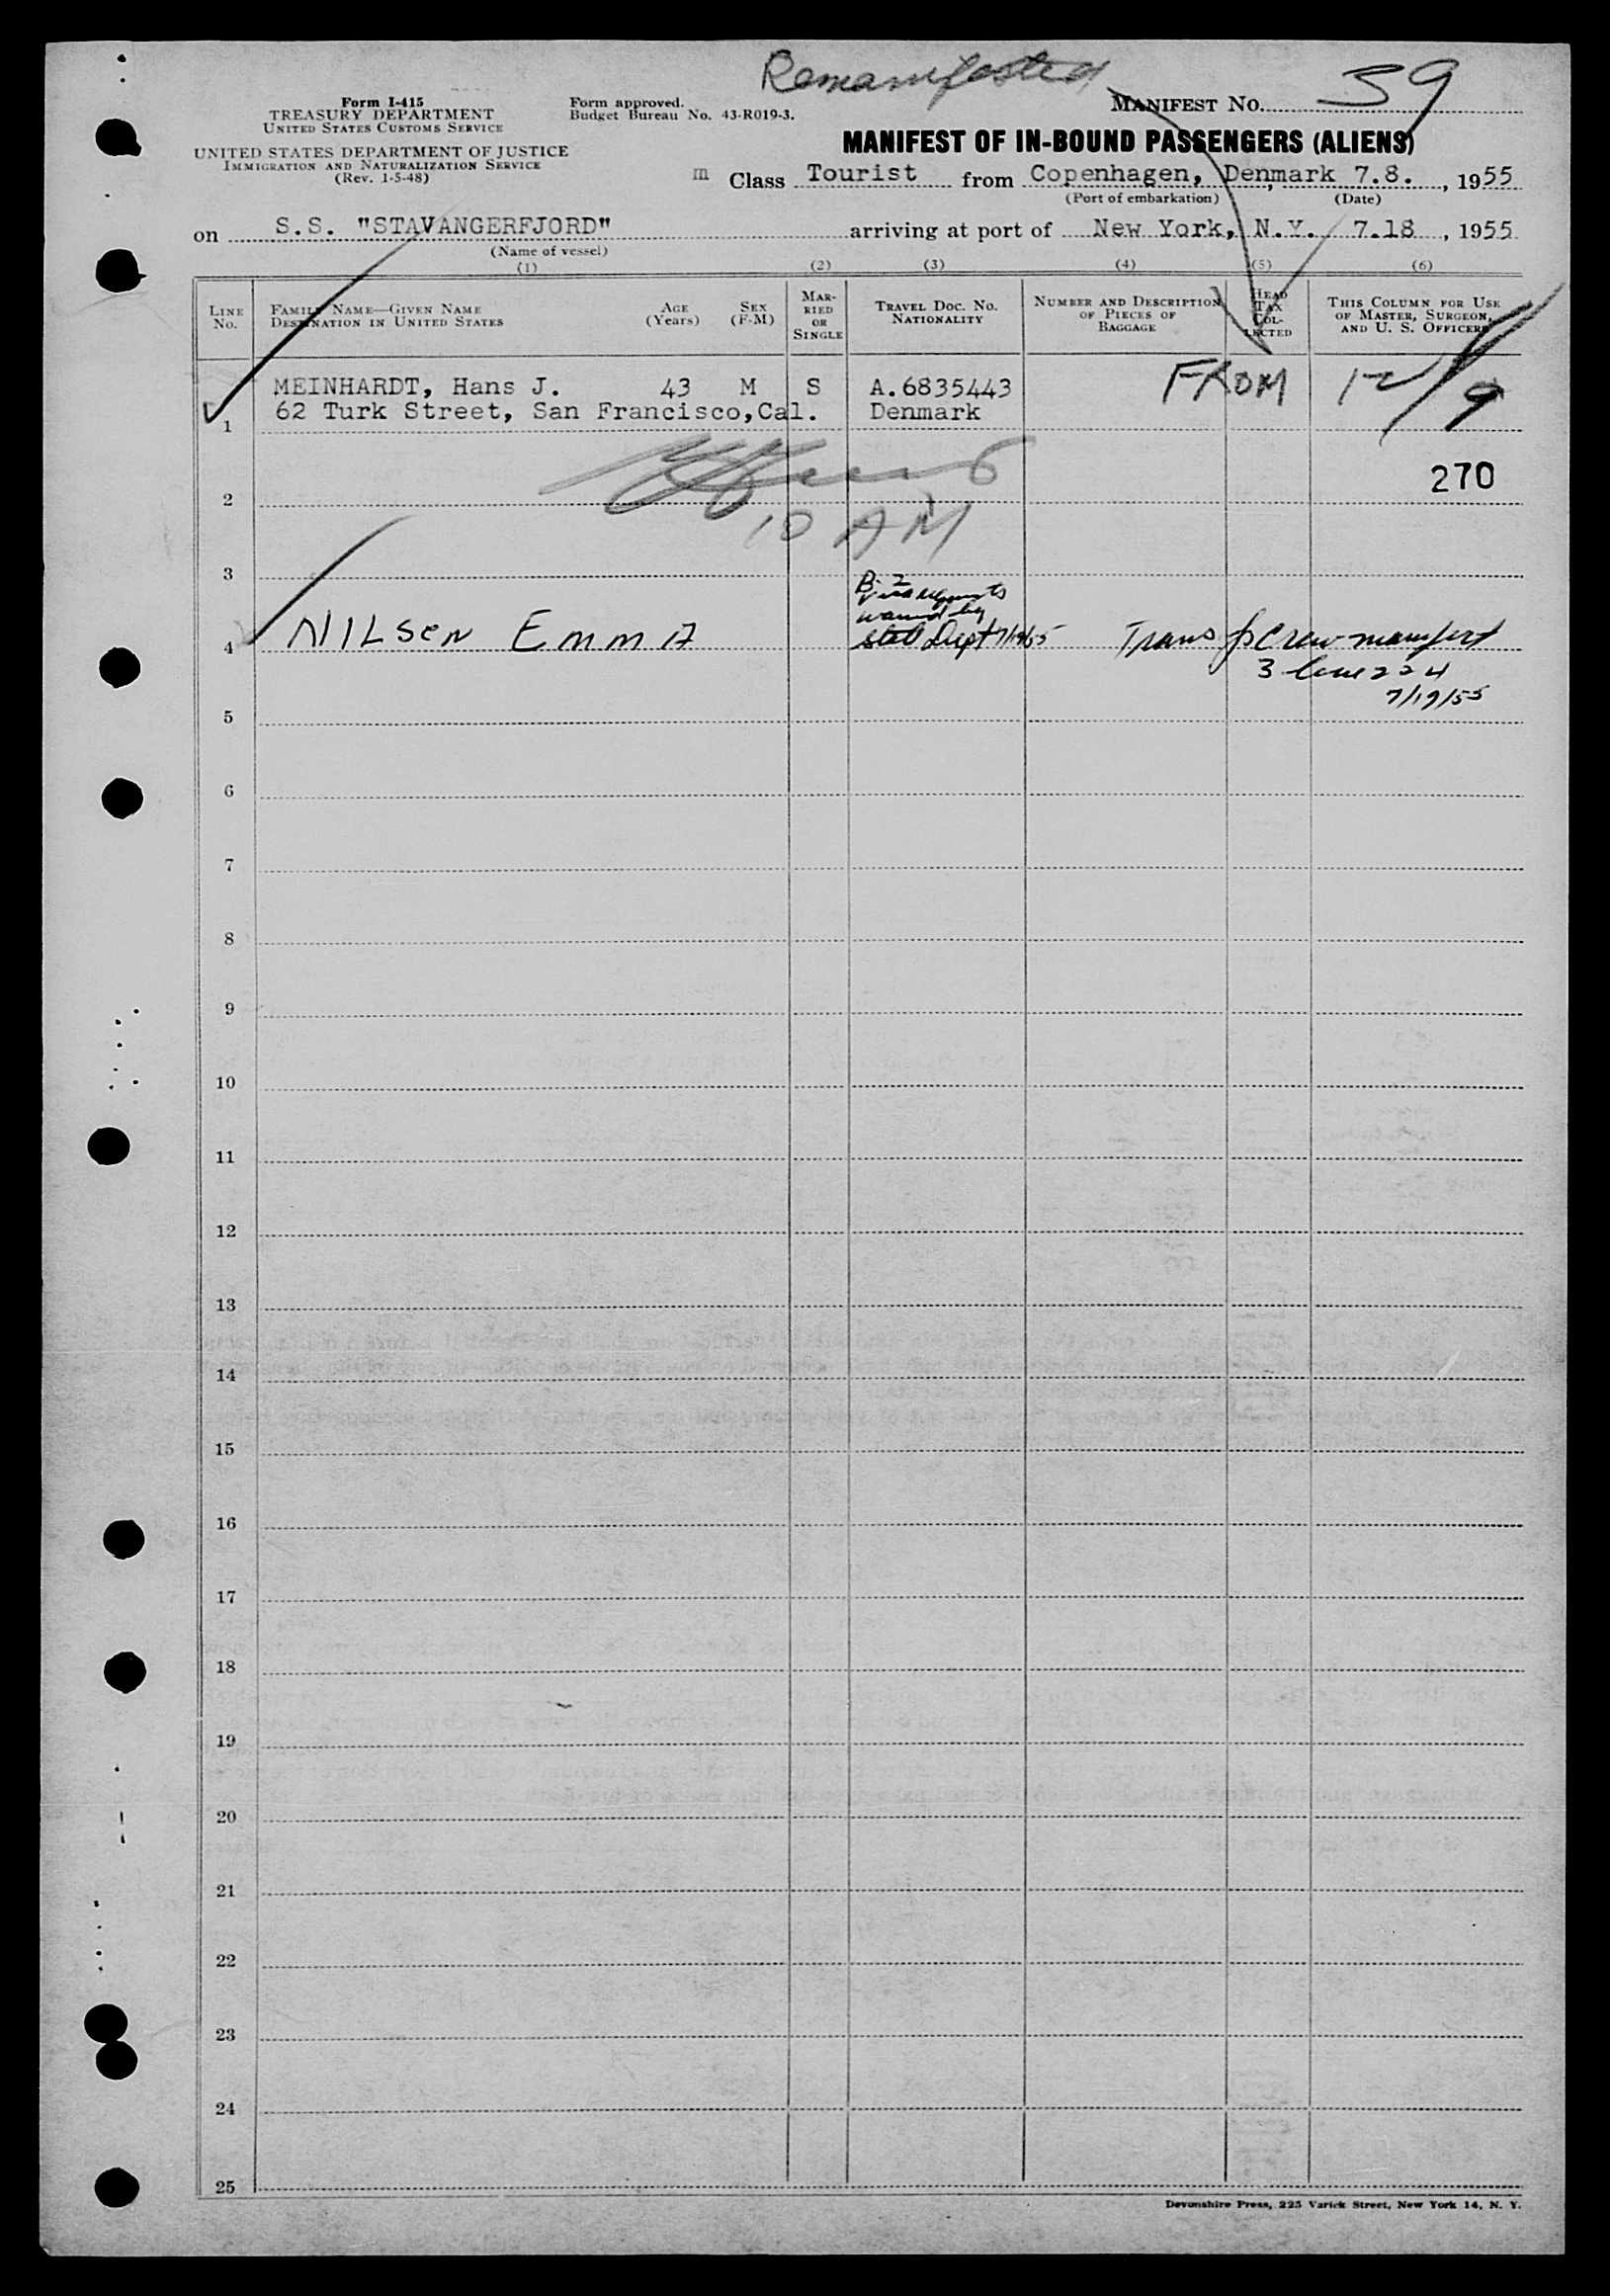 Remanifested
Form I-415
TREASURY DEPARTMENT
UNITED STATES CUSTOMS SERVICE
UNITED STATES DEPARTMENT OF JUSTICE
IMMIGRATION AND NATURALIZATION SERVICE
(Rev. 1-5-48)
Form approved.
Budget Bureau No. 43-R019-3.
MANIFEST NO. 39
MANIFEST OF IN-BOUND PASSENGERS (ALIENS)
m Class Tourist from Copenhagen, Denmark 7.8., 1955
(Port of embarkation) (Date)
on S.S. "STAVANGERFJORD" arriving at port of New York, N.Y. 7.18, 1955
(Name of vessel)
(1) (2) (3) (4) (5) (6)
LINE No. FAMILY NAME—GIVEN NAME DESTINATION IN UNITED STATES AGE (Years) SEX (F-M) MARRIED OR SINGLE TRAVEL DOC. NO. NATIONALITY NUMBER AND DESCRIPTION OF PIECES OF BAGGAGE HEAD TAX COLLECTED THIS COLUMN FOR USE OF MASTER, SURGEON, AND U. S. OFFICERS
MEINHARDT, Hans J. 43 M S A.6835443 FROM 12/9
1 62 Turk Street, San Francisco, Cal. Denmark
270
2
10 AM
3
B-2
waived by
4 NILSEN EMMA State Dept 7/19/55 Trans fr Crew manifest
3 line 224
7/19/55
5
6
7
8
9
10
11
12
13
14
15
16
17
18
19
20
21
22
23
24
25
Devonshire Press, 225 Varick Street, New York 14, N. Y.